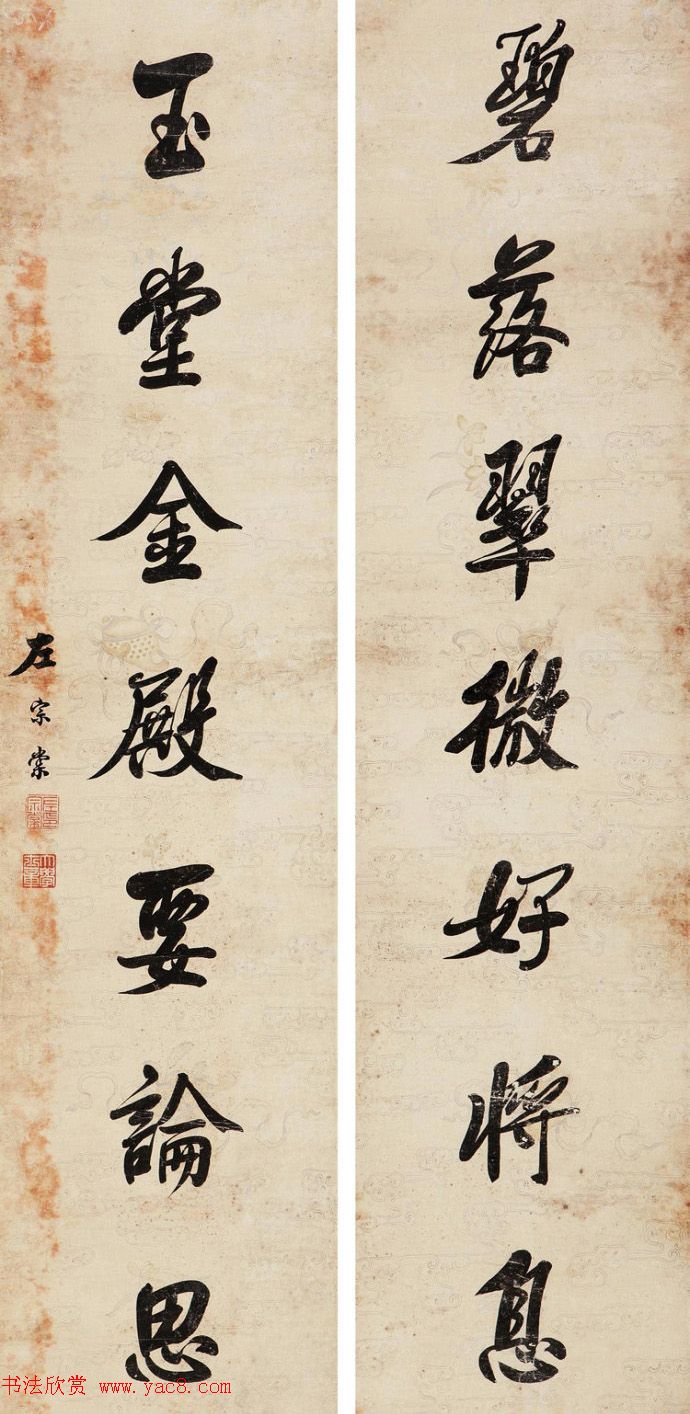 碧落翠微好將息
玉堂金殿要論思
左宗棠
书法欣赏 www.yac8.com